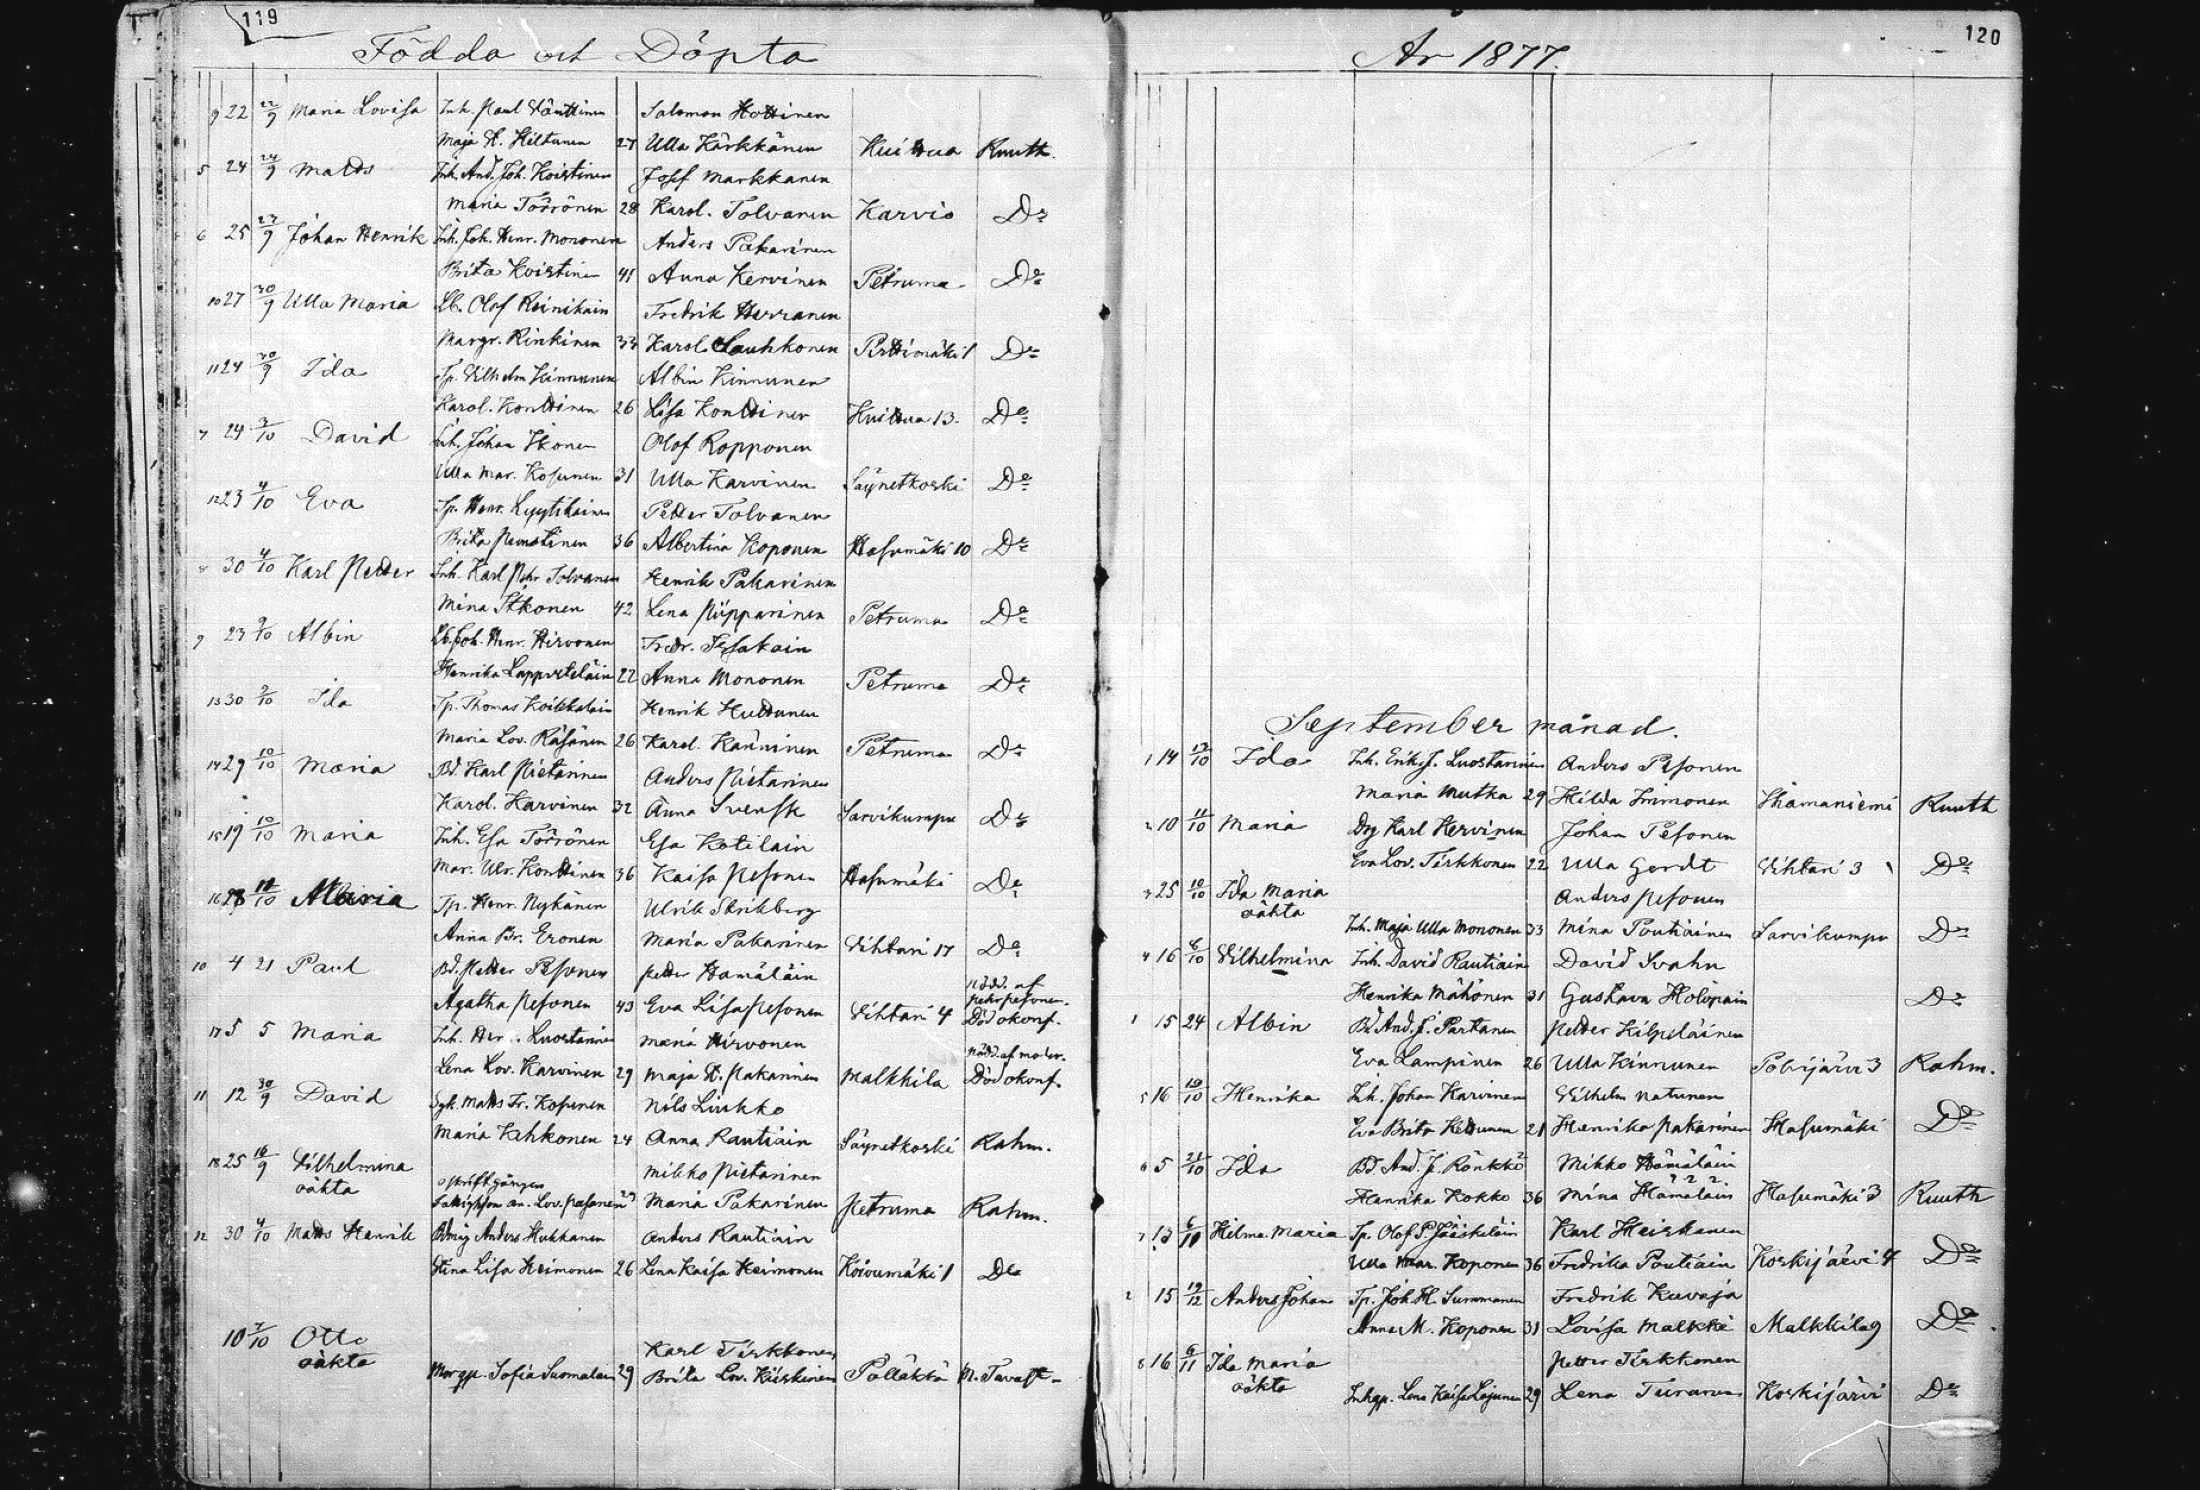 119
Födda och Döpta
9 22 22/9 Maria Lovisa Inh. Paul Väuttinen Salomon Hottinen
Maja K. Hiltunen 27 Ulla Kärkkänen Huittua Ruuth.
5 24 24/9 Matts Inh. And. Joh. Koistinen Josef Markkanen
Maria Törrönen 28 Karol. Tolvanen Karvio Do
6 25 27/9 Johan Henrik Inh. Joh. Henr. Mononen Anders Pakarinen
Brita Koistinen 41 Anna Kervinen Petruma Do
10 27 30/9 Ulla Maria Lb. Olof Reinikain Fredrik Herranen
Margr. Rinkinen 33 Karol. Lauhkonen Pirttimäki 1 Do
11 24 30/9 Ida Tp. Vilhelm Kinnunen Albin Kinnunen
Karol. Konttinen 26 Lisa Konttinen Huittua 13. Do
7 24 3/10 David Inh. Johan Ikonen Olof Ropponen
Ulla Mar. Kosunen 31 Ulla Karvinen Säynetkoski Do
12 23 4/10 Eva Tp. Henr. Lyytikäinen Petter Tolvanen
Brita 36 Albertina Koponen Hasumäki 10 Do
8 30 4/10 Karl Petter Inh. Karl Pehr Tolvanen Henrik Pakarinen
Mina Itkonen 42 Lena Piipparinen Petruma Do
9 23 9/10 Albin Lb. Joh. Henr. Hirvonen Fredr.
Henrika Lappveteläin 22 Anna Mononen Petruma Do
13 30 9/10 Ida Tp. Thomas Koikkalain Henrik Huttunen
Maria Lov. Räsänen 26 Karol. Kanninen Petruma Do
14 29 10/10 Maria Bd. Karl Pietarinen Anders Pietarinen
Karol. Karvinen 32 Anna Svensk Sarvikumpu Do
15 19 10/10 Maria Inh. Esa Törrönen Esa Kotilain
Mar. Ulr. Konttinen 36 Kaisa Pesonen Hasumäki Do
16 28 11/10 Maria Tp. Henr. Nykänen Ulrik Skrikberg
Anna Br. Eronen Maria Pakarinen Vihtari 17 Do
10 4 21 Paul Bd. Petter Pesonen Petter Hämäläin nödd. af
Agatha Pesonen 43 Eva Lisa Pesonen Vihtari 4 Pehr Pesonen. Död okonf.
17 5 5 Maria Inh. Luostarinen Maria Hirvonen nödd. af moder.
Lena Lov. Karvinen 29 Maja K. Pakarinen Malkkila Död okonf.
11 12 30/9 David Matts Fr. Kosunen Nils Liukko
Maria Kehkonen 24 Anna Rautiain Säynetkoski Rahm.
18 25 16/9 Vilhelmina Mikko Pietarinen
oäkta oskriftgången
an. Lov. Pasanen 29 Maria Pakarinen Petruma Rahm.
12 30 4/10 Matts Henrik Anders Hukkanen Anders Rautiain
Stina Lisa Heimonen 26 Lena Kaisa Heimonen Koivumäki 1 Do
10 7/10 Otto Karl Tirkkonen
oäkta Sofia Suomalain 29 Brita Lov. Kiiskinen Pölläkkä N. Tavast
120
År 1877.
September månad.
1 14 Ida Inh. Erik J. Luostarinen Anders Pesonen
Maria Mutka 29 Hilda Immonen Ihamaniemi Ruuth
2 10 11/10 Maria Drg Karl Kervinen Johan Pesonen
Eva Lov. Tirkkonen 22 Ulla Gerdt Vihtari 3 Do
3 25 10/10 Ida Maria Anders Pesonen
oäkta Inh. Maja Ulla Mononen 33 Mina Poutiainen Sarvikumpu Do
4 16 Vilhelmina Inh. David Rautiain David Svahn
Henrika Mähönen 31 Gustava Holopain Do
1 15 24 Albin Bd And. J. Partanen Petter Kilpeläinen
Eva Lampinen 26 Ulla Kinnunen Polvijärvi 3 Rahm.
5 16 19/10 Henrika Inh. Johan Karvinen Vilhelm Natunen
Eva Brita Kettunen 21 Henrika Pakarinen Hasumäki Do
6 5 21/10 Ida Bd. And. J. Rönkkö Mikko Hämäläin
Henrika Kokko 36 Mina Hämäläin Hasumäki 3 Ruuth
7 13 Hilma Maria Tp. Olof P. Jääskeläin Karl Heiskanen
Ulla Mar. Koponen 36 Fredrika Poutiain Koskijärvi 4 Do
2 15 19/12 Anders Johan Tp. Joh. H. Summanen Fredrik Kuvaja
Anna M. Koponen 31 Lovisa Malkki Malkkila 9 Do
8 16 6/11 Ida Maria Petter Tirkkonen
oäkta Inhgp. Lena Kaisa Lajunen 29 Lena Turunen Koskijärvi Do